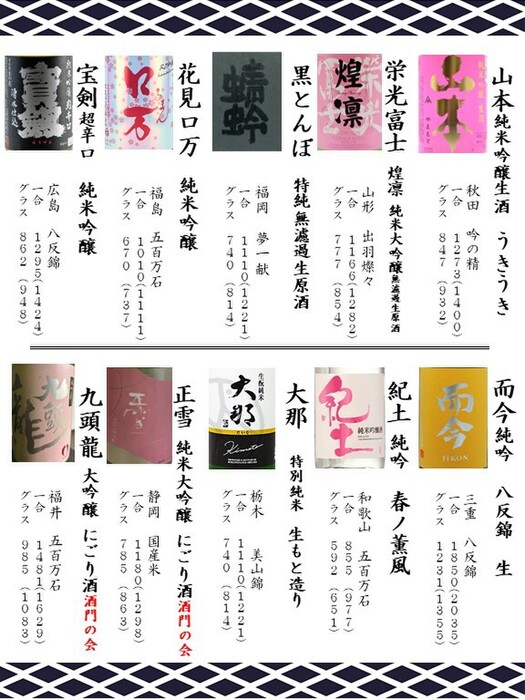 山本純米吟醸生酒 うきうき
秋田 吟の精
一合 1273(1400)
グラス 847(932)
栄光富士 煌凛 純米大吟醸無濾過生原酒
山形 出羽燦々
一合 1166(1282)
グラス 777(854)
黒とんぼ 特純無濾過生原酒
福岡 夢一献
一合 1110(1221)
グラス 740(814)
花見ロ万 純米吟醸
福島 五百万石
一合 1010(1111)
グラス 670(737)
宝剣 超辛口 純米吟醸
広島 八反錦
一合 1295(1424)
グラス 862(948)
山本
やまもと
煌凛
蜻蛉
ロ万
寳剱
而今純吟 八反錦 生
三重 八反錦
一合 1850(2035)
グラス 1231(1355)
紀土 純吟 春ノ薫風
和歌山 五百万石
一合 855(977)
グラス 592(651)
大那 特別純米 生もと造り
栃木 美山錦
一合 1110(1221)
グラス 740(814)
正雪 純米大吟醸 にごり酒酒門の会
静岡 国産米
一合 1180(1298)
グラス 785(863)
九頭龍 大吟醸 にごり酒酒門の会
福井 五百万石
一合 1481(1629)
グラス 985(1083)
而今
JIKON
紀土
純米吟醸酒
生酛純米
大那
Kimoto
正雪
九頭龍